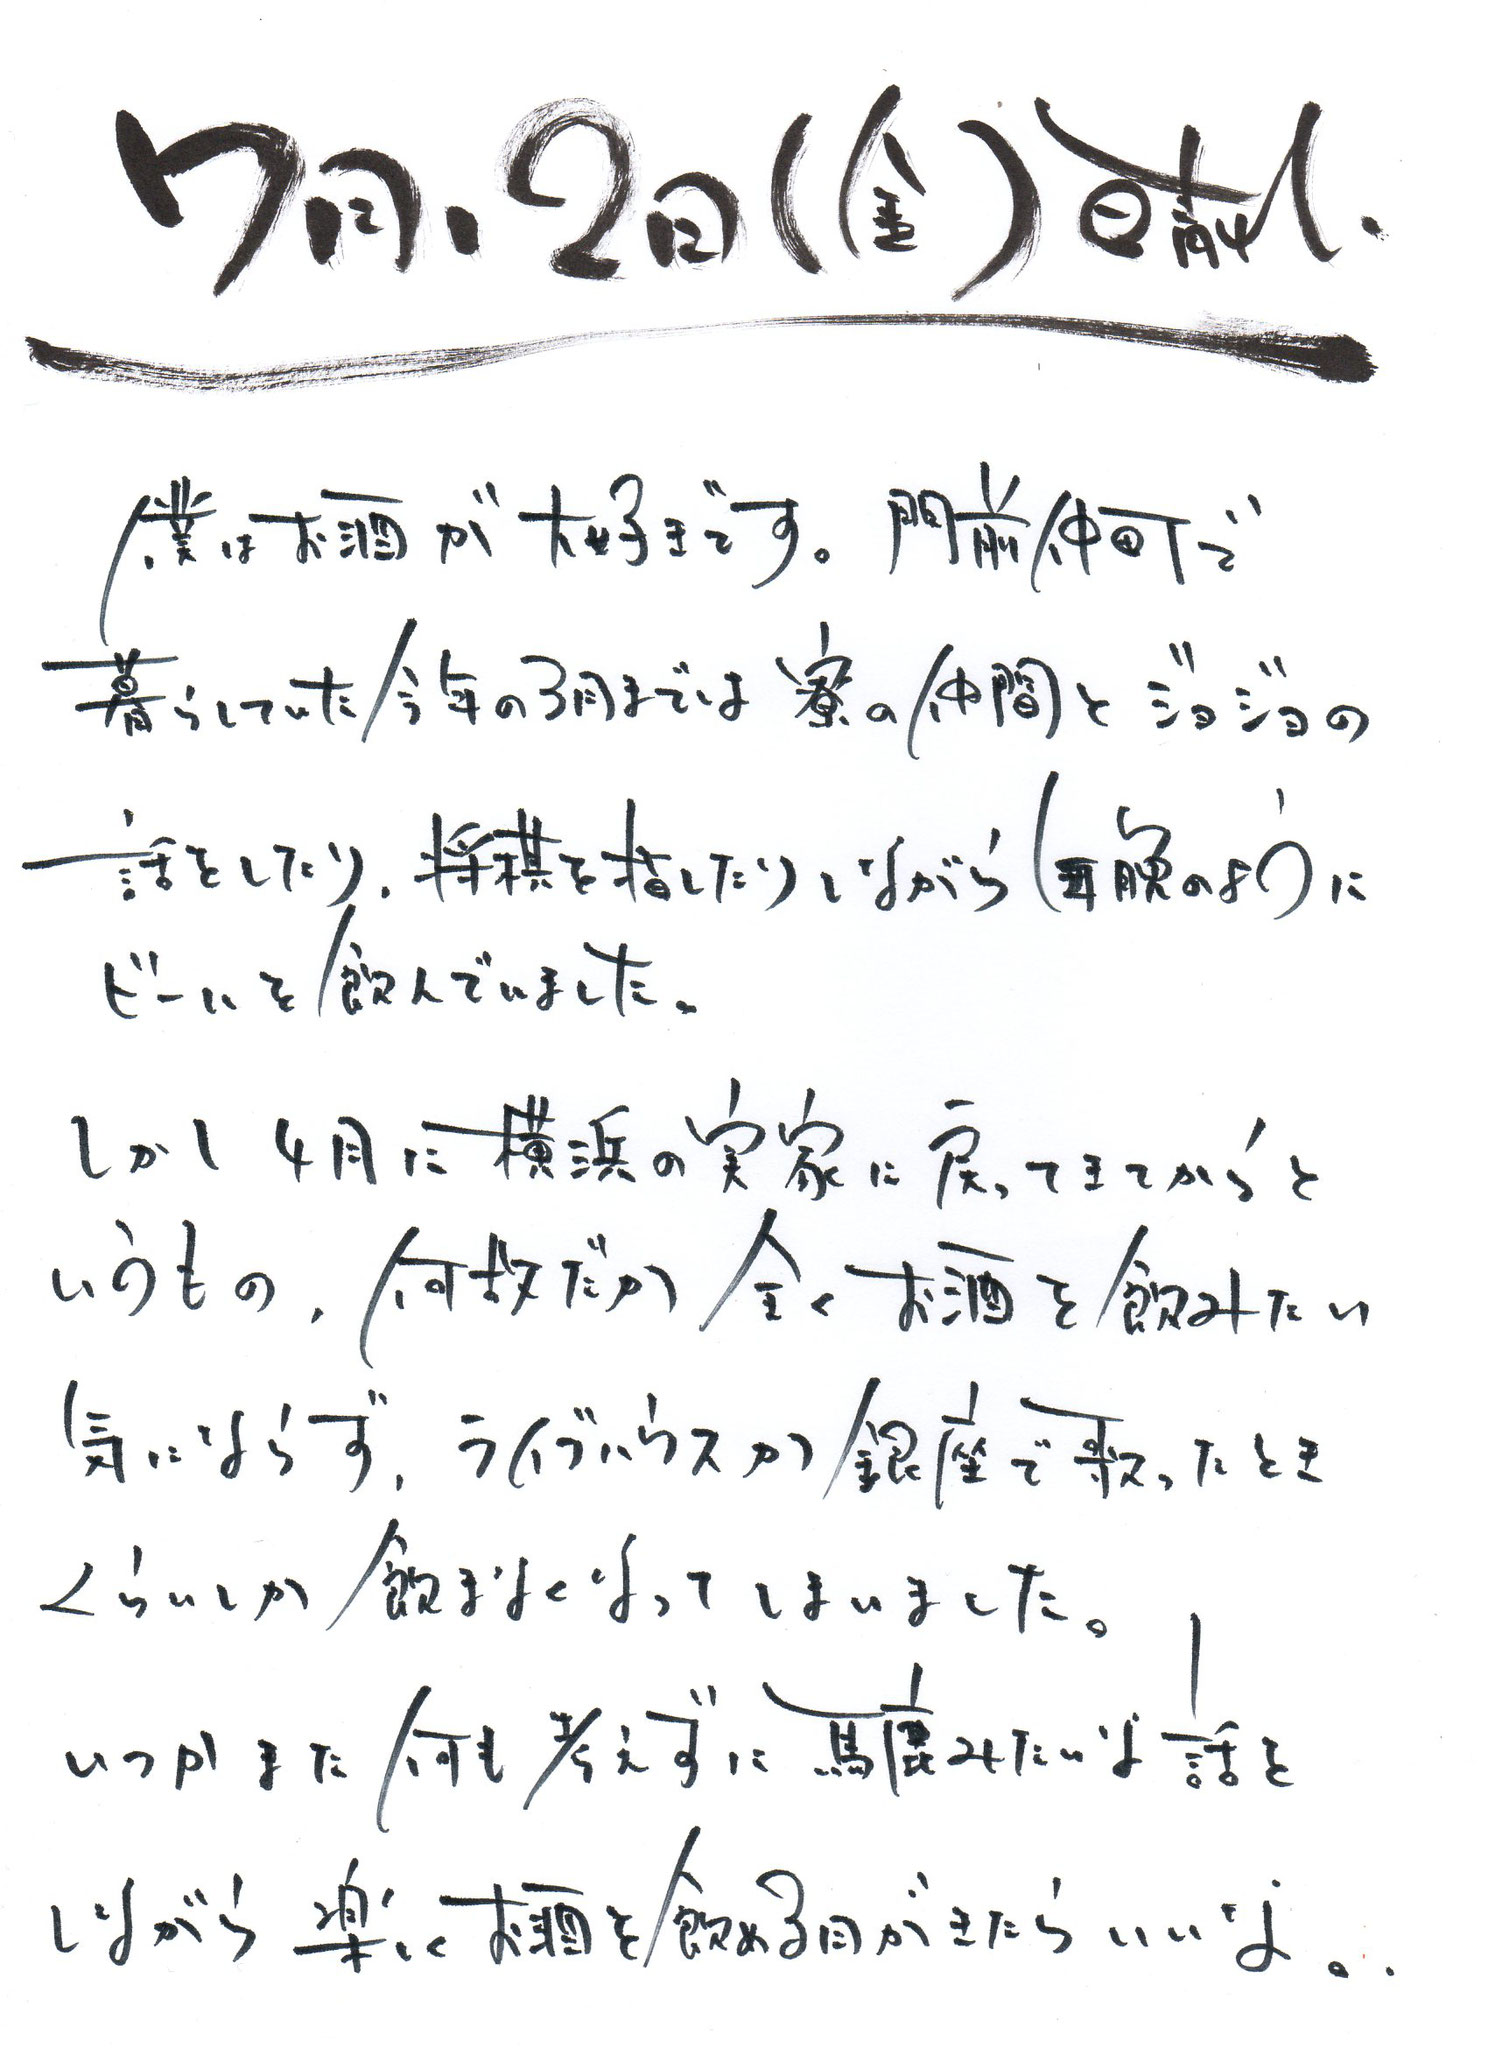 7月2日(金)晴れ.
僕はお酒が大好きです。門前仲町で
暮らしていた今年の3月までは寮の仲間とジョジョの
話をしたり、将棋を指したりしながら毎晩のように
ビールを飲んでいました。
しかし4月に横浜の実家に戻ってきてからと
いうもの、何故だか全くお酒を飲みたい
気にならず、ライブハウスか銀座で歌ったとき
くらいしか飲まなくなってしまいました。
いつかまた何も考えずに馬鹿みたいな話を
しながら楽しくお酒を飲める日がきたらいいな。.